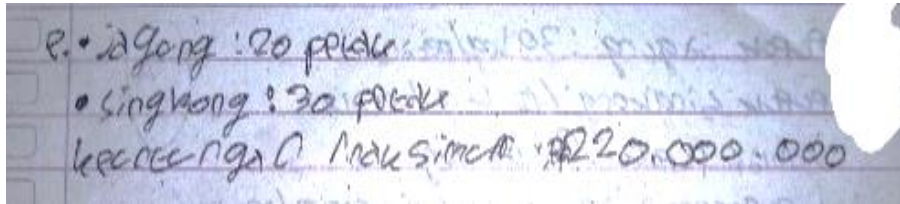 e. • jagong : 20 petak
• singkong : 30 petak
keuntungan maksimal 220.000.000